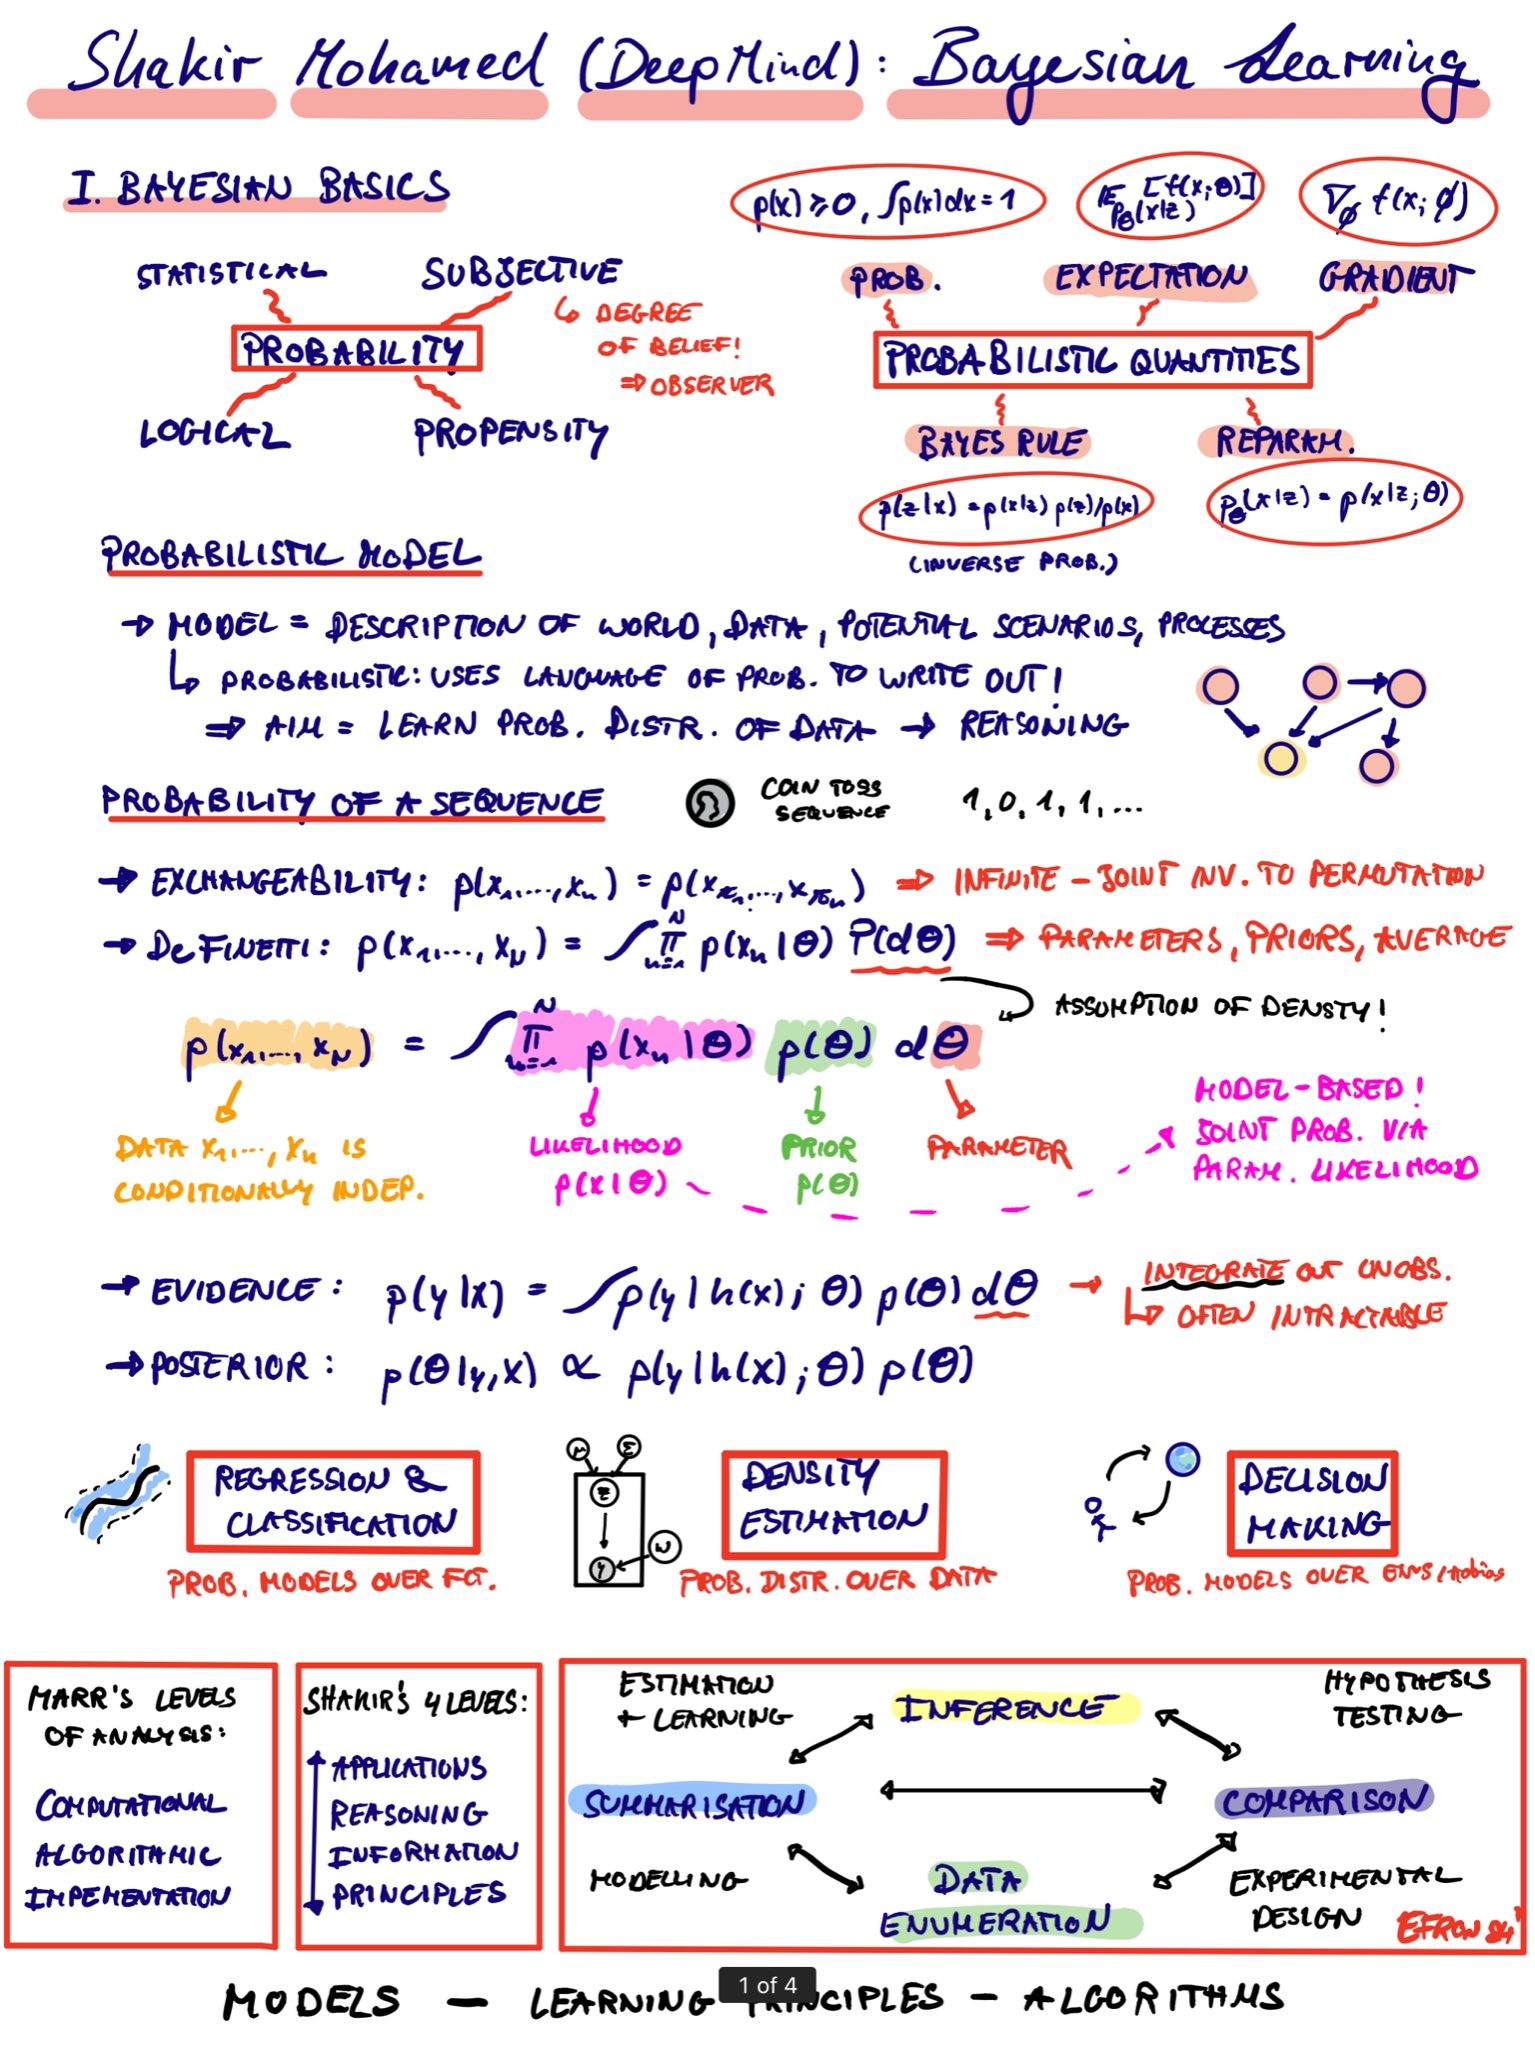 Shakir Mohamed (DeepMind): Bayesian Learning
I. BAYESIAN BASICS
p(x) ⩾ 0, ∫p(x)dx = 1
E_{pθ(x|z)} [f(x;θ)]
∇_ϕ f(x; ϕ)
STATISTICAL
SUBJECTIVE
↳ DEGREE
OF BELIEF!
⇒ OBSERVER
PROBABILITY
LOGICAL
PROPENSITY
PROB.
EXPECTATION
GRADIENT
PROBABILISTIC QUANTITIES
BAYES RULE
REPARAM.
p(z|x) = p(x|z) p(z)/p(x)
p_θ(x|z) = p(x|z; θ)
(INVERSE PROB.)
PROBABILISTIC MODEL
→ MODEL = DESCRIPTION OF WORLD, DATA, POTENTIAL SCENARIOS, PROCESSES
↳ PROBABILISTIC: USES LANGUAGE OF PROB. TO WRITE OUT!
⇒ AIM = LEARN PROB. DISTR. OF DATA → REASONING
PROBABILITY OF A SEQUENCE
COIN TOSS
SEQUENCE
1, 0, 1, 1, ...
→ EXCHANGEABILITY: p(x₁,...,xₙ) = p(x_{π₁},...,x_{πₙ}) ⇒ INFINITE - JOINT INV. TO PERMUTATION
→ DeFINETTI: p(x₁,..., x_N) = ∫ ∏_{n=1}^N p(xₙ|θ) P(dθ) ⇒ PARAMETERS, PRIORS, AVERAGE
ASSUMPTION OF DENSTY!
p(x₁,..., x_N) = ∫ ∏_{n=1}^N p(xₙ|θ) p(θ) dθ
DATA x₁,..., xₙ IS
CONDITIONALLY INDEP.
LIKELIHOOD
p(x|θ)
PRIOR
p(θ)
PARAMETER
MODEL-BASED!
JOINT PROB. VIA
PARAM. LIKELIHOOD
→ EVIDENCE: p(y|x) = ∫p(y|h(x); θ) p(θ) dθ → INTEGRATE OUT UNOBS.
↳ OFTEN INTRACTABLE
→ POSTERIOR: p(θ|y,x) ∝ p(y|h(x); θ) p(θ)
REGRESSION &
CLASSIFICATION
PROB. MODELS OVER FCT.
μ Σ
z
y
W
DENSITY
ESTIMATION
PROB. DISTR. OVER DATA
DECISION
MAKING
PROB. MODELS OVER ENVS/
MARR'S LEVELS
OF ANALYSIS:
COMPUTATIONAL
ALGORITHMIC
IMPEMENTATION
SHAKIR'S 4 LEVELS:
APPLICATIONS
REASONING
INFORMATION
PRINCIPLES
ESTIMATION
+ LEARNING
INFERENCE
HYPOTHESIS
TESTING
SUMMARISATION
COMPARISON
MODELLING
DATA
ENUMERATION
EXPERIMENTAL
DESIGN
EFRON 84'
1 of 4
MODELS — LEARNING PRINCIPLES — ALGORITHMS